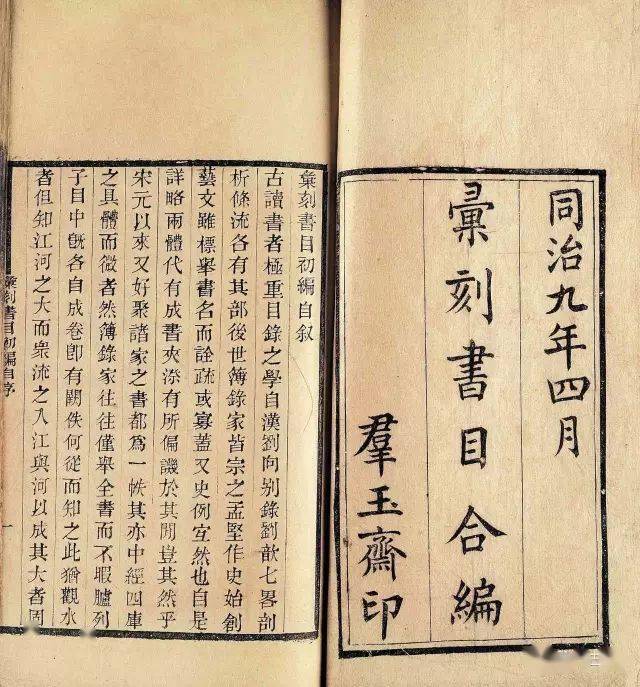 同治九年四月
彙刻書目合編
羣玉齋印
彙刻書目初編自叙
古讀書者極重目錄之學自漢劉向别錄劉歆七畧剖
析條流各有其部後世簿錄家皆宗之孟堅作史始創
藝文雖標舉書名而詮疏或寡蓋又史例宜然也自是
詳略兩體代有成書夾漈有所偏譏於其閒豈其然乎
宋元以來又好聚諸家之書都爲一帙其亦中經四庫
之具體而微者然簿錄家往往僅舉全書而不暇臚列
子目中旣各自成卷卽有闕佚何從而知之此猶觀水
者但知江河之大而衆流之入江與河以成其大者固
彙刻書目初編自序
一